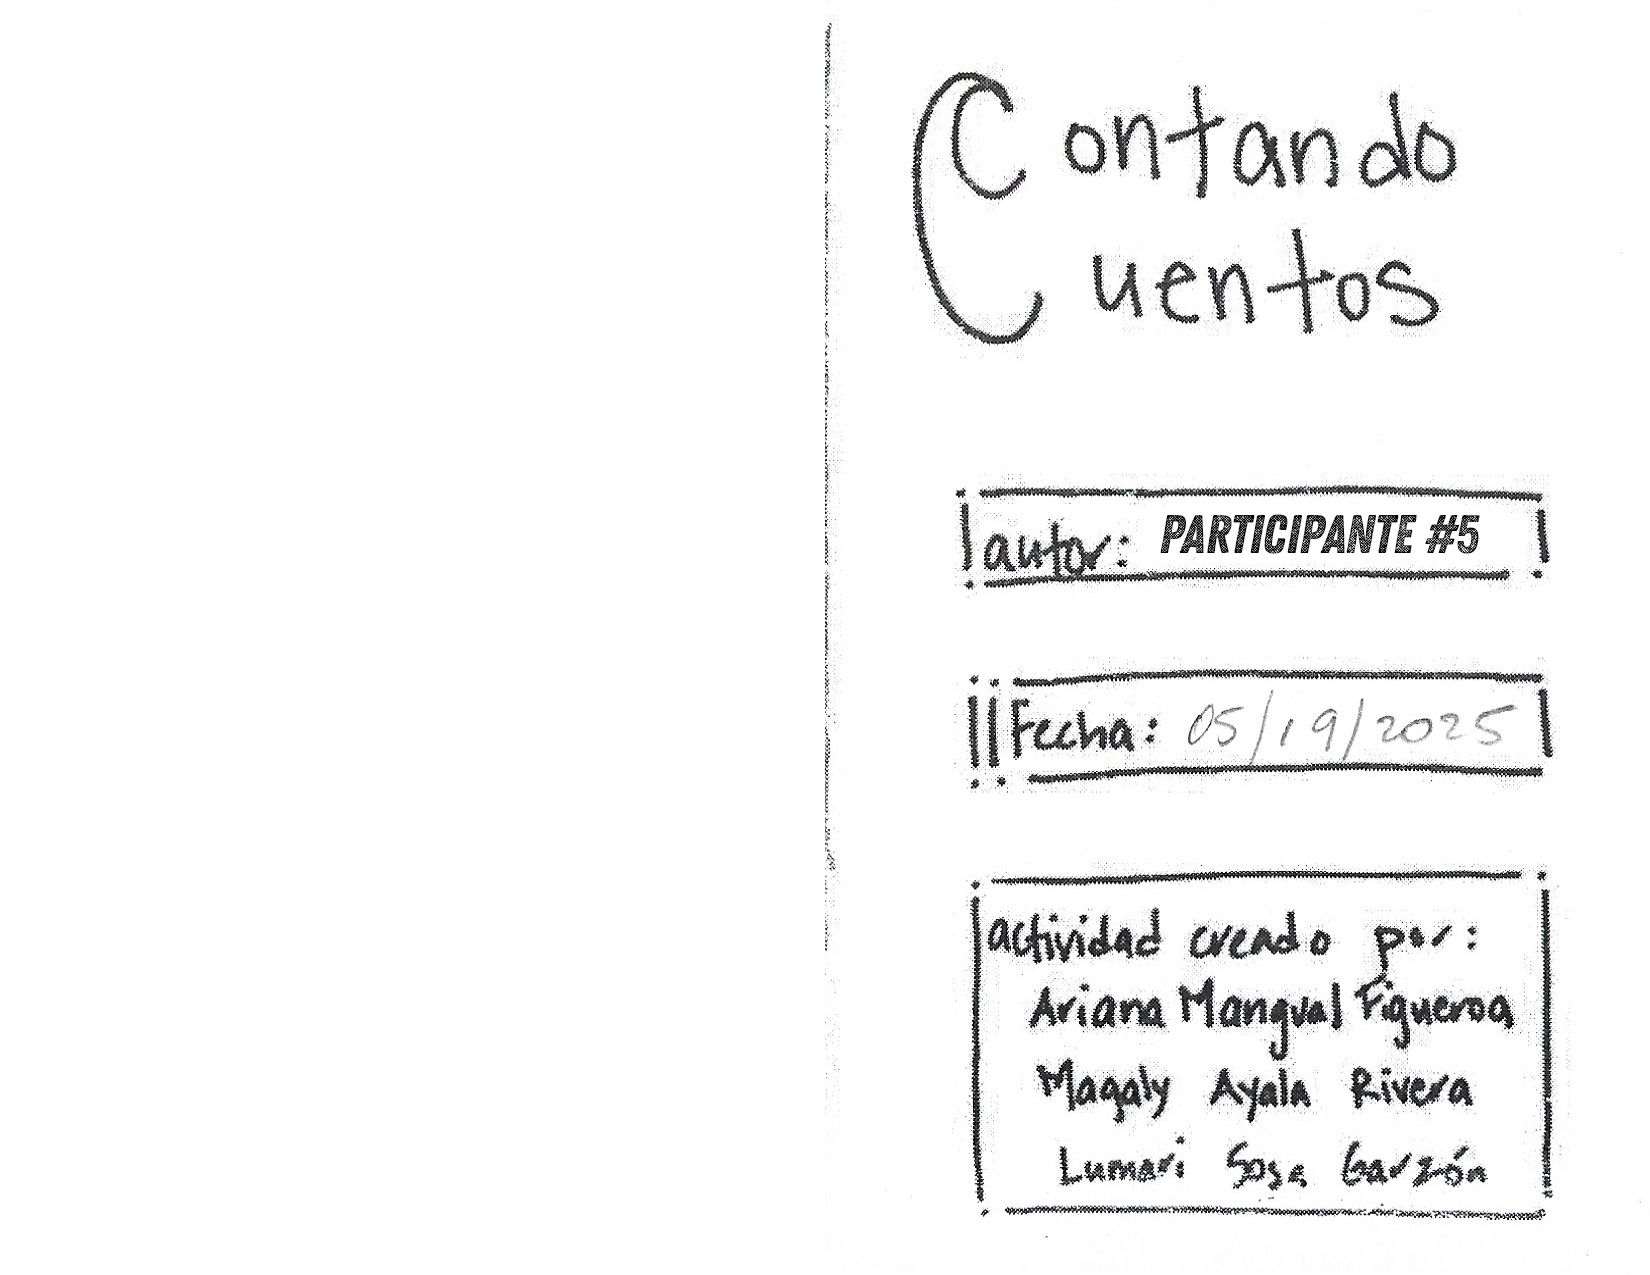 Contando
Cuentos
autor: PARTICIPANTE #5
Fecha: 05/19/2025
actividad creado por:
Ariana Mangual Figueroa
Magaly Ayala Rivera
Lumari Sosa Garzón